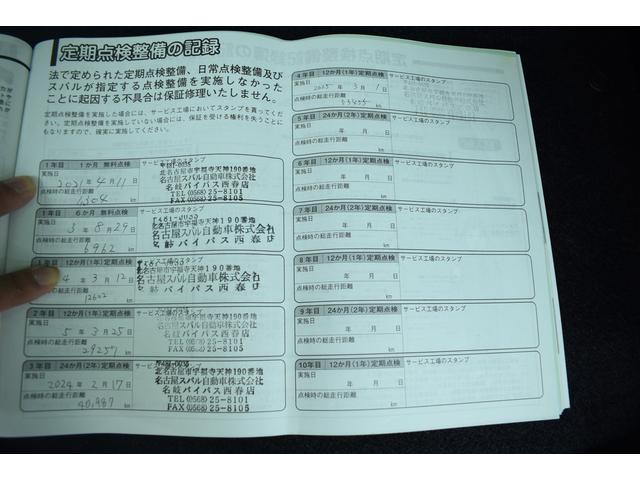 定期点検整備の記録
法で定められた定期点検整備、日常点検整備及び
スバルが指定する点検整備を実施しなかった
ことに起因する不具合は保証修理いたしません。
定期点検整備を実施した場合には、サービス工場においてスタンプを貰ってください。
定期点検整備を実施していない場合には、保証を受ける権利を失うことにもなりますので、確実に実施してください。
1年目 1か月 無料点検 サービス工場のスタンプ
実施日
2021年 4月 11日
点検時の総走行距離
1304 km
〒481-0035
北名古屋市宇福寺天神190番地
名古屋スバル自動車株式会社
名岐バイパス西春店
TEL (0568) 25-8101
FAX (0568) 25-8105
1年目 6か月 無料点検 サービス工場のスタンプ
実施日
3年 8月 29日
点検時の総走行距離
6962 km
北名古屋市宇福寺天神190番地
名古屋スバル自動車株式会社
名岐バイパス西春店
12か月(1年)定期点検
4年 3月 12日
km
名古屋スバル自動車株式会社
バイパス西春店
2年目 12か月(1年)定期点検 サービス工場のスタンプ
実施日
5年 3月 25日
点検時の総走行距離
29257 km
北名古屋市宇福寺天神190番地
名古屋スバル自動車株式会社
名岐バイパス西春店
TEL (0568) 25-8101
FAX (0568) 25-8105
3年目 24か月(2年)定期点検 サービス工場のスタンプ
実施日
2024年 2月 17日
点検時の総走行距離
40,987 km
〒481-0035
北名古屋市宇福寺天神190番地
名古屋スバル自動車株式会社
名岐バイパス西春店
TEL (0568) 25-8101
FAX (0568) 25-8105
4年目 12か月(1年)定期点検 サービス工場のスタンプ
実施日
2025年 3月 1日
点検時の総走行距離
km
5年目 24か月(2年)定期点検 サービス工場のスタンプ
実施日
年 月 日
点検時の総走行距離
km
6年目 12か月(1年)定期点検 サービス工場のスタンプ
実施日
年 月 日
点検時の総走行距離
km
7年目 24か月(2年)定期点検 サービス工場のスタンプ
実施日
年 月 日
点検時の総走行距離
km
8年目 12か月(1年)定期点検 サービス工場のスタンプ
実施日
年 月 日
点検時の総走行距離
km
9年目 24か月(2年)定期点検 サービス工場のスタンプ
実施日
年 月 日
点検時の総走行距離
km
10年目 12か月(1年)定期点検 サービス工場のスタンプ
実施日
年 月 日
点検時の総走行距離
km